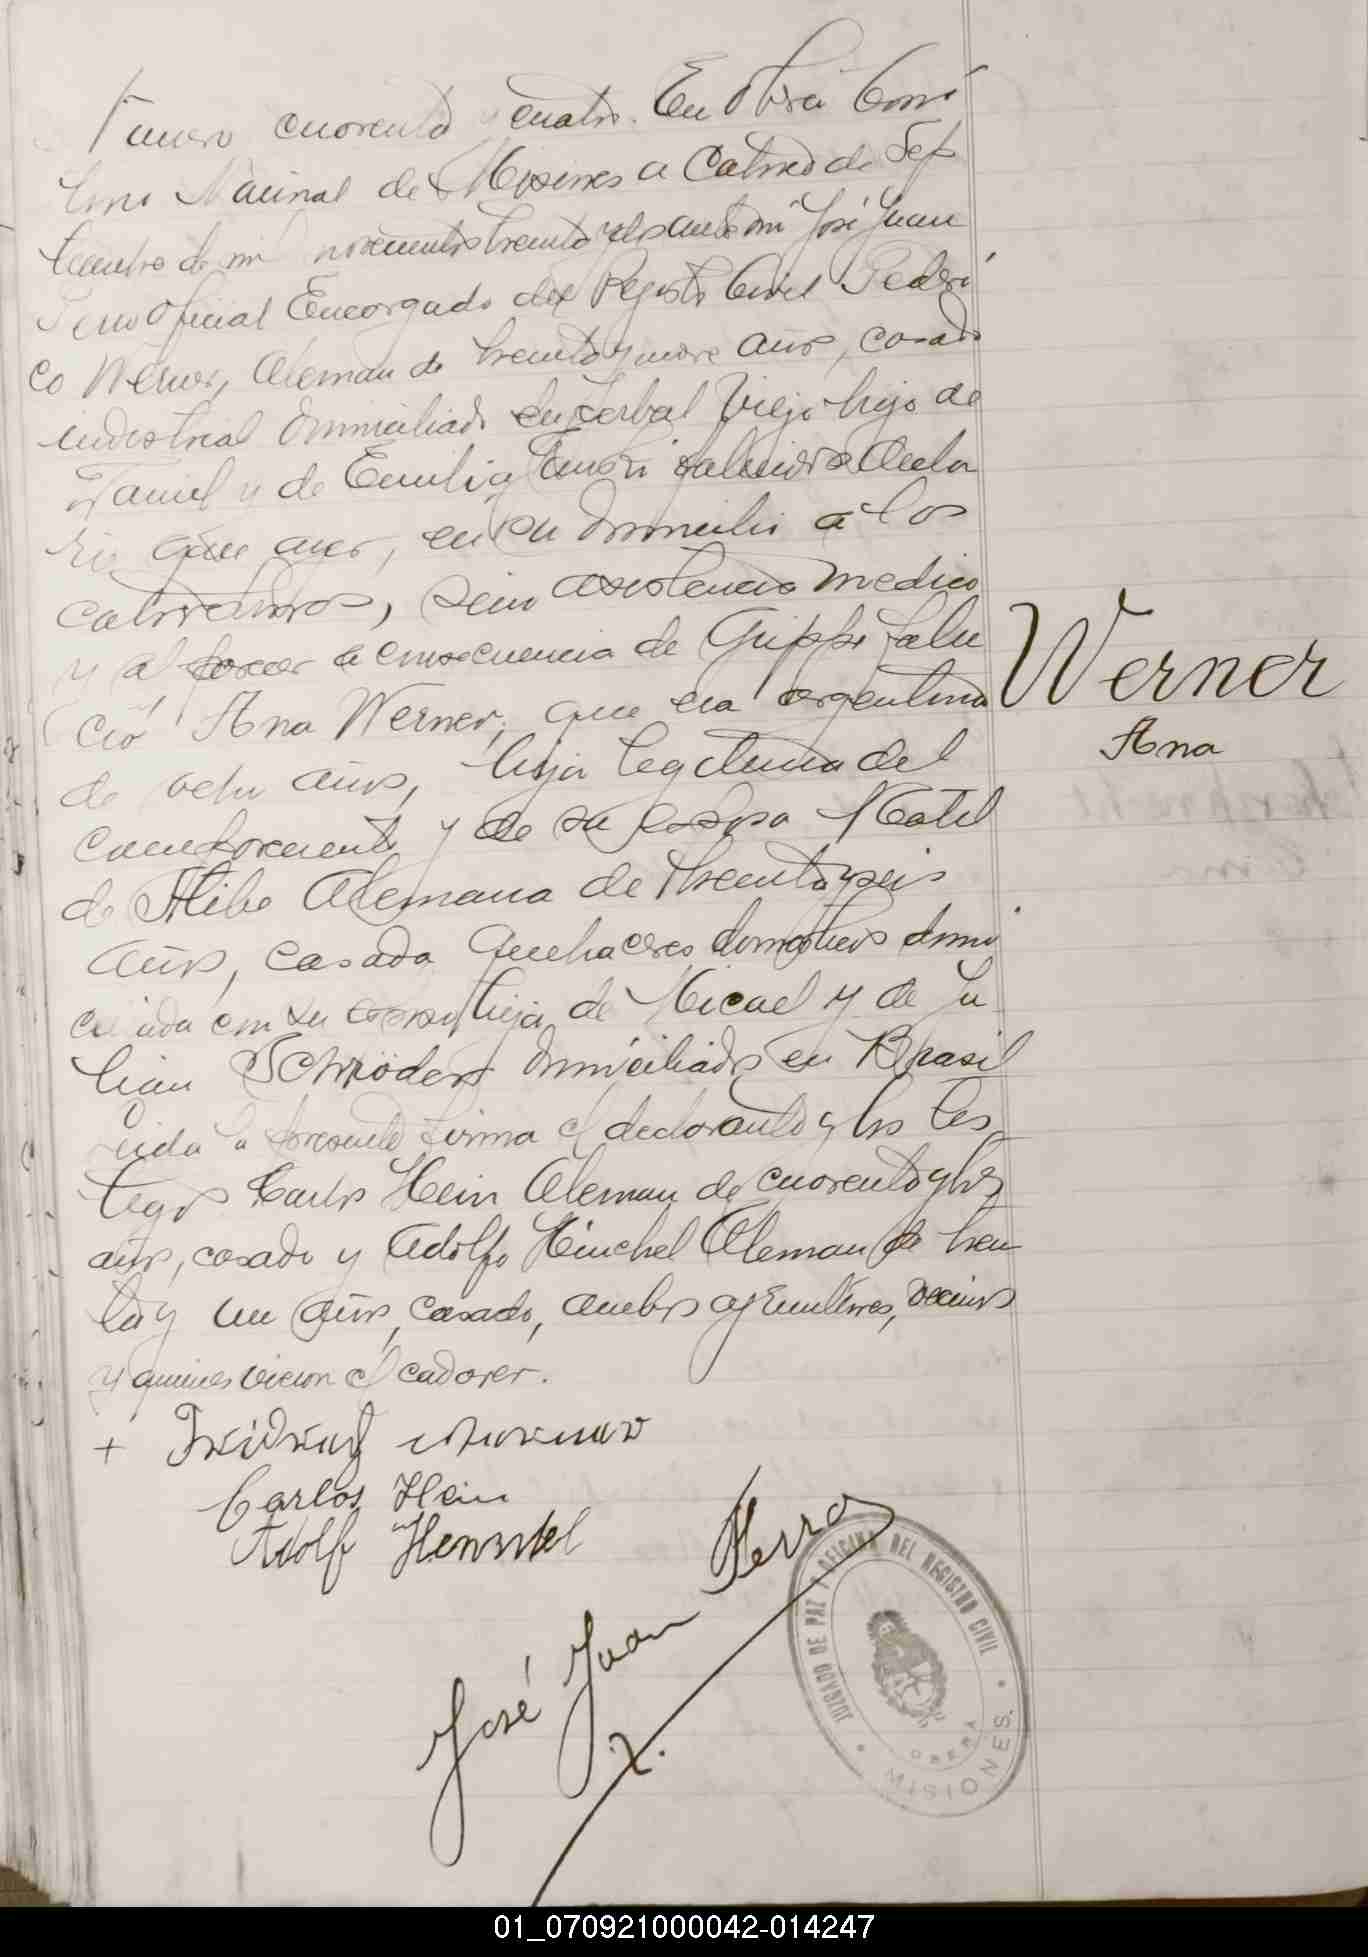 Número cuarenta y cuatro. En Oberá Terri
torio Nacional de Misiones a Catorce de Sep
tiembre de mil novecientos treinta y dos ante mi José Juan
Oficial Encargado del Registro Civil Federi
co Werner, Aleman de treinta y nueve años, casado
industrial domiciliado en Yerbal Viejo hijo de
Daniel y de Emilia decla
ró que ayer, en su domicilio a las
catorce horas, sin asistencia medica
y al parecer a consecuencia de Grippe falle
ció Ana Werner, que era argentina
de ocho años, hija legitima del
compareciente y de su esposa Matil
de Alemana de treinta y seis
años, casada quehaceres domesticos domi
ciliada con su esposo hija de Micael y de Ju
lian Schröder domiciliados en Brasil
Leida la presente firma el declarante y los tes
tigos Carlos Hein Aleman de cuarenta y tres
años, casado y Adolfo Hinchel Aleman de trein
ta y un años, casado, ambos agricultores, vecinos
y quienes vieron el cadaver.
Werner
Ana
+ Fridrich Werner
Carlos Hein
Adolf
José Juan
JUZGADO DE PAZ Y OFICINA DEL REGISTRO CIVIL
OBERA
MISIONES.
01_070921000042-014247